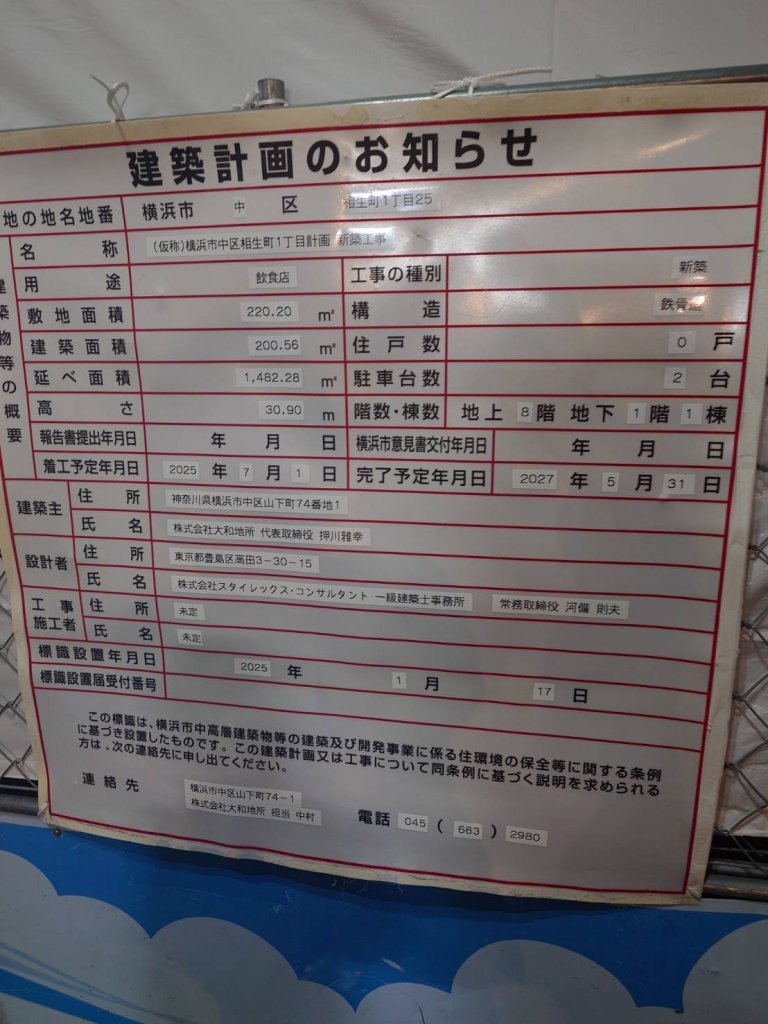 建築計画のお知らせ
地の地名地番 横浜市 中 区 相生町1丁目25
建築物等の概要
名称 (仮称)横浜市中区相生町1丁目計画 新築工事
用途 飲食店 工事の種別 新築
敷地面積 220.20 ㎡ 構造 鉄骨造
建築面積 200.56 ㎡ 住戸数 0 戸
延べ面積 1,482.28 ㎡ 駐車台数 2 台
高さ 30.90 m 階数・棟数 地上 8 階 地下 1 階 1 棟
報告書提出年月日 年 月 日 横浜市意見書交付年月日 年 月 日
着工予定年月日 2025 年 7 月 1 日 完了予定年月日 2027 年 5 月 31 日
建築主 住所 神奈川県横浜市中区山下町74番地1
氏名 株式会社大和地所 代表取締役 押川雅幸
設計者 住所 東京都豊島区高田3-30-15
氏名 株式会社スタイレックス・コンサルタント 一級建築士事務所 常務取締役 河備 則夫
工事施工者 住所 未定
氏名 未定
標識設置年月日 2025 年 1 月 17 日
標識設置届受付番号
この標識は、横浜市中高層建築物等の建築及び開発事業に係る住環境の保全等に関する条例
に基づき設置したものです。この建築計画又は工事について同条例に基づく説明を求められる
方は、次の連絡先に申し出てください。
連絡先 横浜市中区山下町74-1
株式会社大和地所 担当 中村
電話 045 ( 663 ) 2980